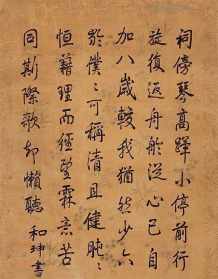 祠傍琴高蹕小停前行
旋復返舟舲從心已自
加八歲較我猶然少六
僕〻可稱清且健肫〻
恒藉理而經望霖亦苦
同斯際歌却懶聽
和珅書